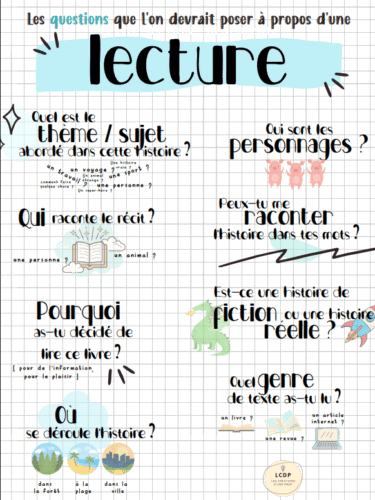 Les questions que l'on devrait poser à propos d'une
lecture
Quel est le
thème / sujet
abordé dans cette histoire ?
un travail ?
un voyage ?
un animal
étrange ?
un sport ?
une personne ?
Qui raconte le récit ?
une personne ?
un animal ?
Pourquoi
as-tu décidé de
lire ce livre ?
[ pour de l'information,
pour le plaisir ]
Où
se déroule l'histoire ?
dans
la forêt
à la
plage
dans la
ville
Qui sont les
personnages ?
Peux-tu me
raconter
l'histoire dans tes mots ?
Est-ce une histoire de
fiction, ou une histoire
réelle ?
Quel genre
de texte as-tu lu ?
un livre ?
une revue ?
un article
internet ?
LCDP